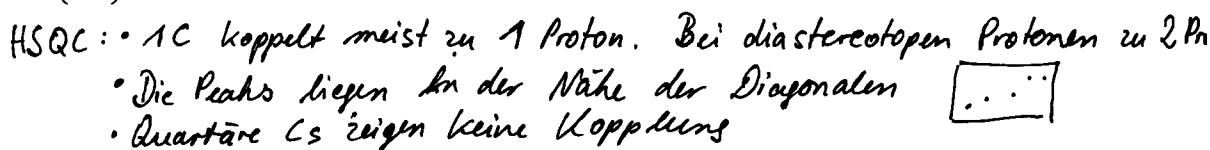 HSQC: • 1C koppelt meist zu 1 Proton. Bei diastereotopen Protonen zu 2 Pr
• Die Peaks liegen in der Nähe der Diagonalen
• Quartäre Cs zeigen keine Kopplung